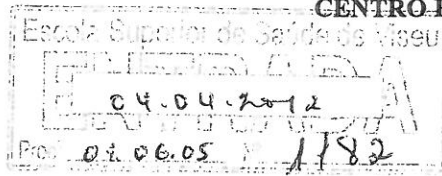 CENTRO
Escola Superior de Saúde de Viseu
ENTRADA
04.04.2012
Proc. 01.06.05 1182